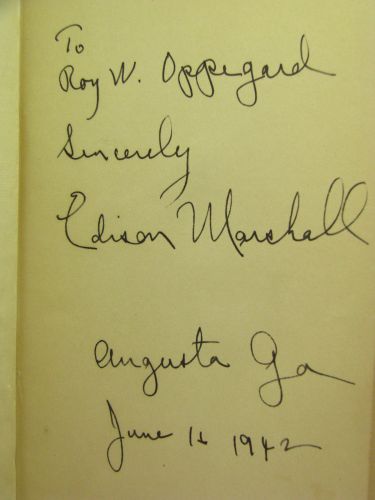 To
Roy W. Oppegard
Sincerely
Edison Marshall
Augusta Ga
June 1942